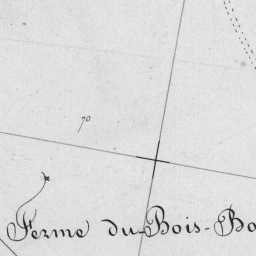 70
Ferme du Bois-Bo